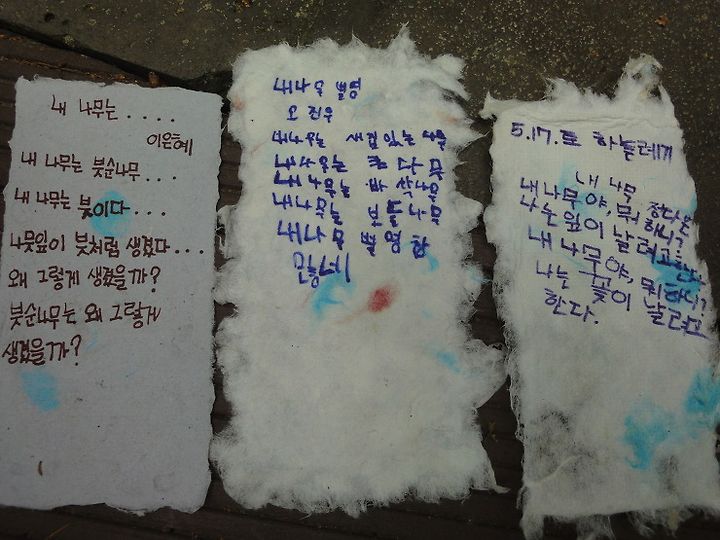 내 나무는....
이은혜
내 나무는 붓순나무...
내 나무는 붓이다...
나뭇잎이 붓처럼 생겼다...
왜 그렇게 생겼을까?
붓순나무는 왜 그렇게
생겼을까?
내나무 별명
오진우
내나무는 색깔있는 나무
내나무는 큰 다무
내나무는 바삭나무
내나무는 보들나무
내나무 별명 참
많네
5.17.토 하늘
내 나무 정다은
내나무야, 뭐하니?
나는 잎이 날려고한다
내 나무야, 뭐하니?
나는 꽃이 날려고
한다.